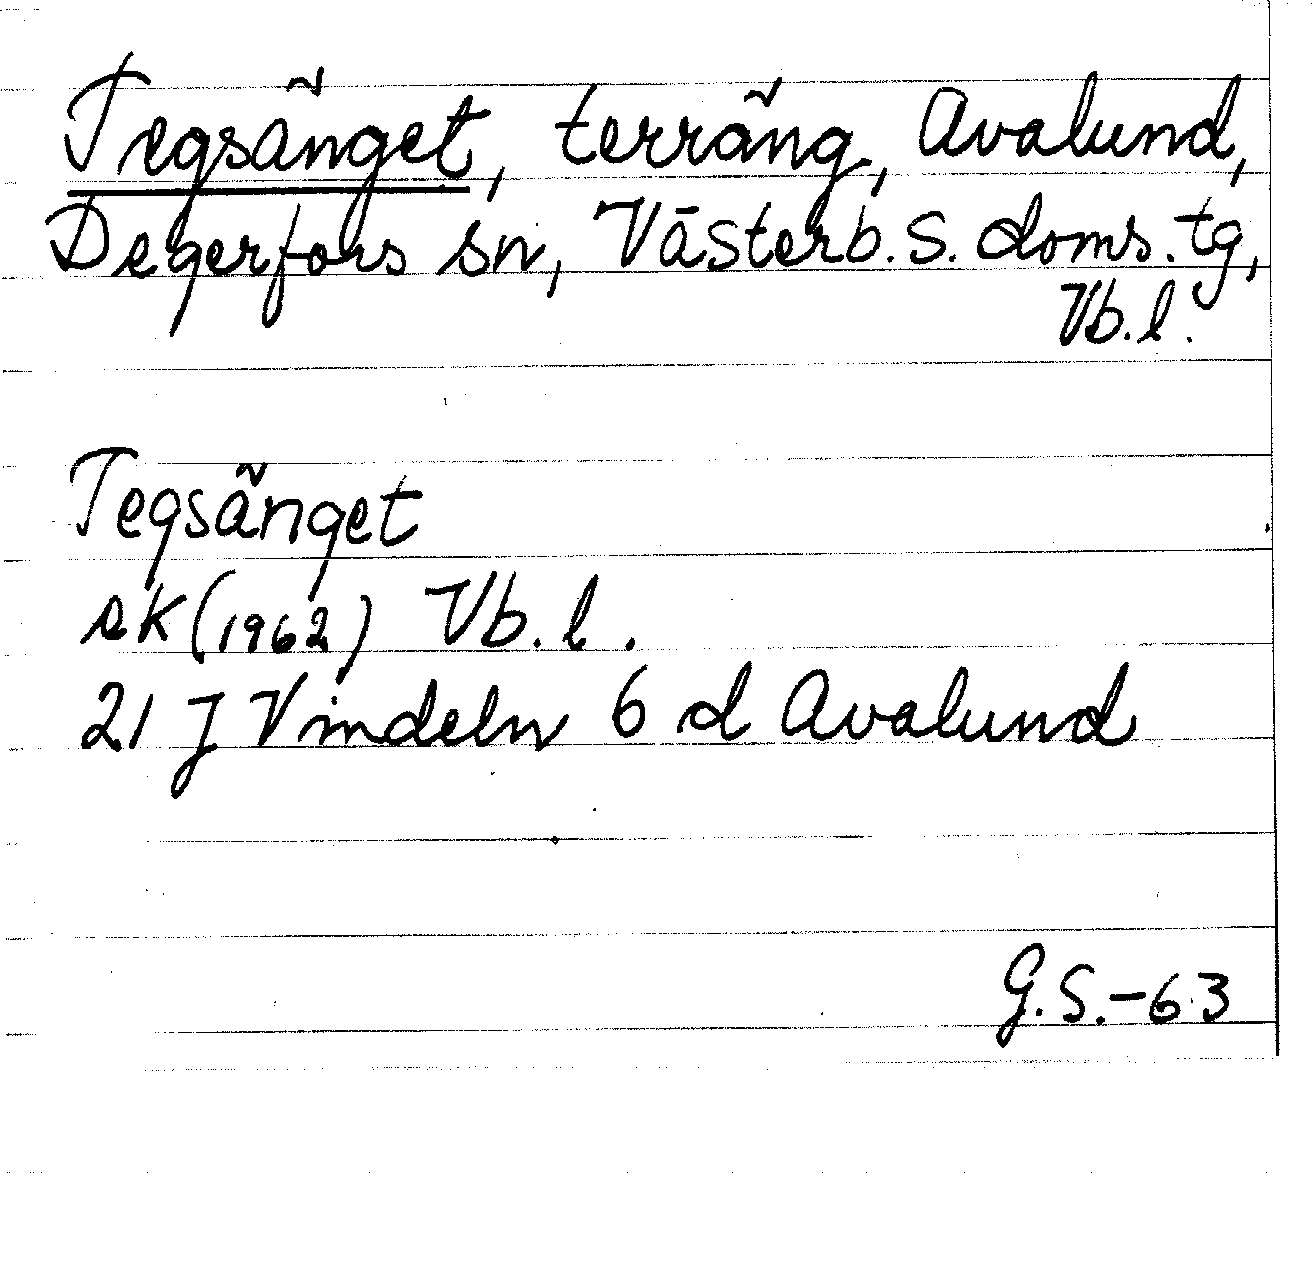 Tegsänget, terräng, Avalund,
Degerfors sn, Västerb. s. doms. tg,
Vb. l.
Tegsänget
ek (1962) Vb. l.
21 J Vindeln 6 d Avalund
G.S.-63